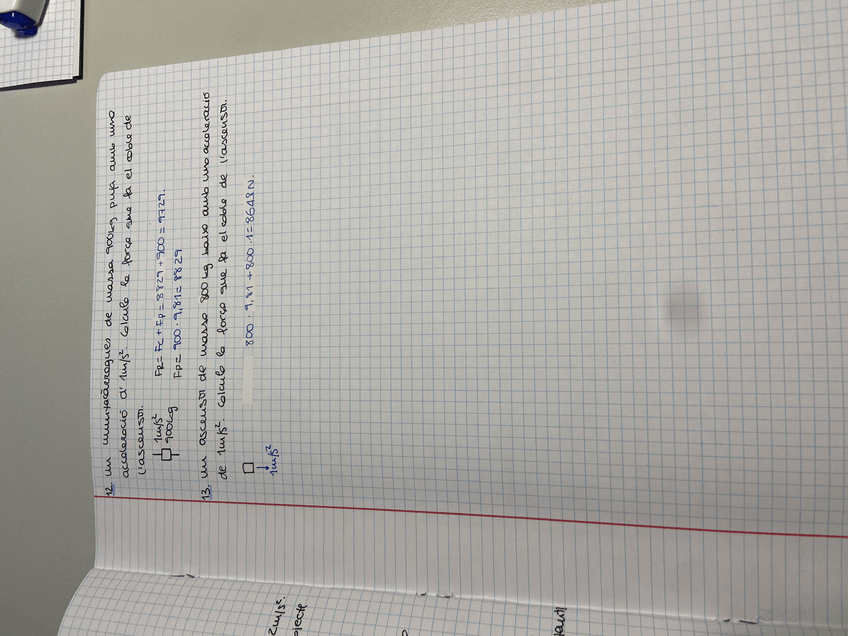 12. Un muntacàrregues de massa 900kg puja amb una
acceleració d' 1m/s². Calcula la força que fa el cable de
l'ascensor.
1m/s²
900kg
FR = Fc + Fp = 8829 + 900 = 9729.
Fp = 900 · 9,81 = 8829
13. Un ascensor de massa 800 kg baixa amb una acceleració
de 1m/s². Calcula la força que fa el cable de l'ascensor.
800 · 9,81 + 800 · 1 = 8648 N.
1m/s²
2m/s².
objecte